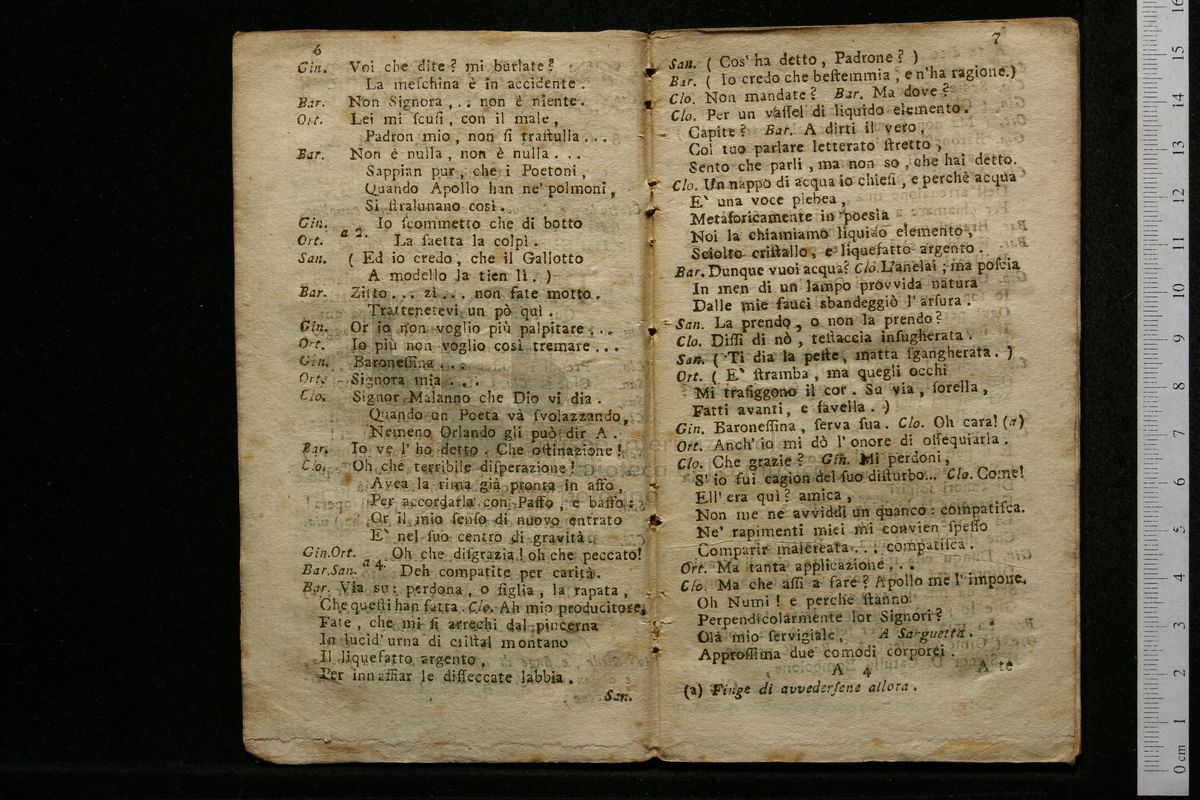 6
Gin. Voi che dite? mi burlate?
La meſchina è in accidente.
Bar. Non Signora, .. non è niente.
Ort. Lei mi ſcuſi, con il male,
Padron mio, non ſi traſtulla...
Bar. Non è nulla, non è nulla...
Sappian pur, che i Poetoni,
Quando Apollo han ne' polmoni,
Si ſtralunano così.
Gin. Io ſcommetto che di botto
Ort. a 2. La ſaetta la colpì.
San. ( Ed io credo, che il Gallotto
A modello la tien lì. )
Bar. Zitto... zì... non fate motto.
Trattenetevi un pò quì.
Gin. Or io non voglio più palpitare...
Ort. Io più non voglio così tremare...
Gin. Baroneſſina...
Ort. Signora mia...
Clo. Signor Malanno che Dio vi dia.
Quando un Poeta và ſvolazzando,
Nemeno Orlando gli può dir A.
Bar. Io ve l' ho detto. Che oſtinazione!
Clo. Oh che terribile diſperazione!
Avea la rima già pronta in aſſo,
Per accordarla con Paſſo, e baſſo:
Or il mio ſenſo di nuovo entrato
E` nel ſuo centro di gravità.
Gin.Ort. Oh che diſgrazia! oh che peccato!
Bar.San. a 4. Deh compatite per carità.
Bar. Via su: perdona, o figlia, la rapata,
Che queſti han fatta. Clo. Ah mio producitore,
Fate, che mi ſi arrechi dal pincerna
In lucid' urna di criſtal montano
Il liquefatto argento,
Per innaffiar le diſſeccate labbia.
San.
7
San. ( Cos' ha detto, Padrone? )
Bar. ( Io credo che beſtemmia, e n'ha ragione.)
Clo. Non mandate? Bar. Ma dove?
Clo. Per un vaſſel di liquido elemento.
Capite? Bar. A dirti il vero,
Col tuo parlare letterato ſtretto,
Sento che parli, ma non so, che hai detto.
Clo. Un nappo di acqua io chieſi, e perchè acqua
E` una voce plebea,
Metaforicamente in poesìa
Noi la chiamiamo liquido elemento,
Sciolto criſtallo, e liquefatto argento.
Bar. Dunque vuoi acqua? Clo. L'anelai; ma poſcia
In men di un lampo provvida natura
Dalle mie fauci sbandeggiò l' arſura.
San. La prendo, o non la prendo?
Clo. Diſſi di nò, teſtaccia inſugherata.
San. ( Ti dia la peſte, matta ſgangherata. )
Ort. ( E` ſtramba, ma quegli occhi
Mi trafiggono il cor. Su via, ſorella,
Fatti avanti, e favella. )
Gin. Baroneſſina, ſerva ſua. Clo. Oh cara! (a)
Ort. Anch' io mi dò l' onore di oſſequiarla.
Clo. Che grazie? Gin. Mi perdoni,
S' io fui cagion del ſuo diſturbo... Clo. Come!
Ell' era quì? amica,
Non me ne avviddi un quanco: compatiſca.
Ne' rapimenti miei mi convien ſpeſſo
Comparir malcreata... compatiſca.
Ort. Ma tanta applicazione...
Clo. Ma che aſſi a fare? Apollo me l' impone.
Oh Numi! e perchè ſtanno
Perpendicolarmente lor Signori?
Olà mio ſervigiale, A Sarguetta.
Approſſima due comodi corporei.
A 4 A te
(a) Finge di avvederſene allora.